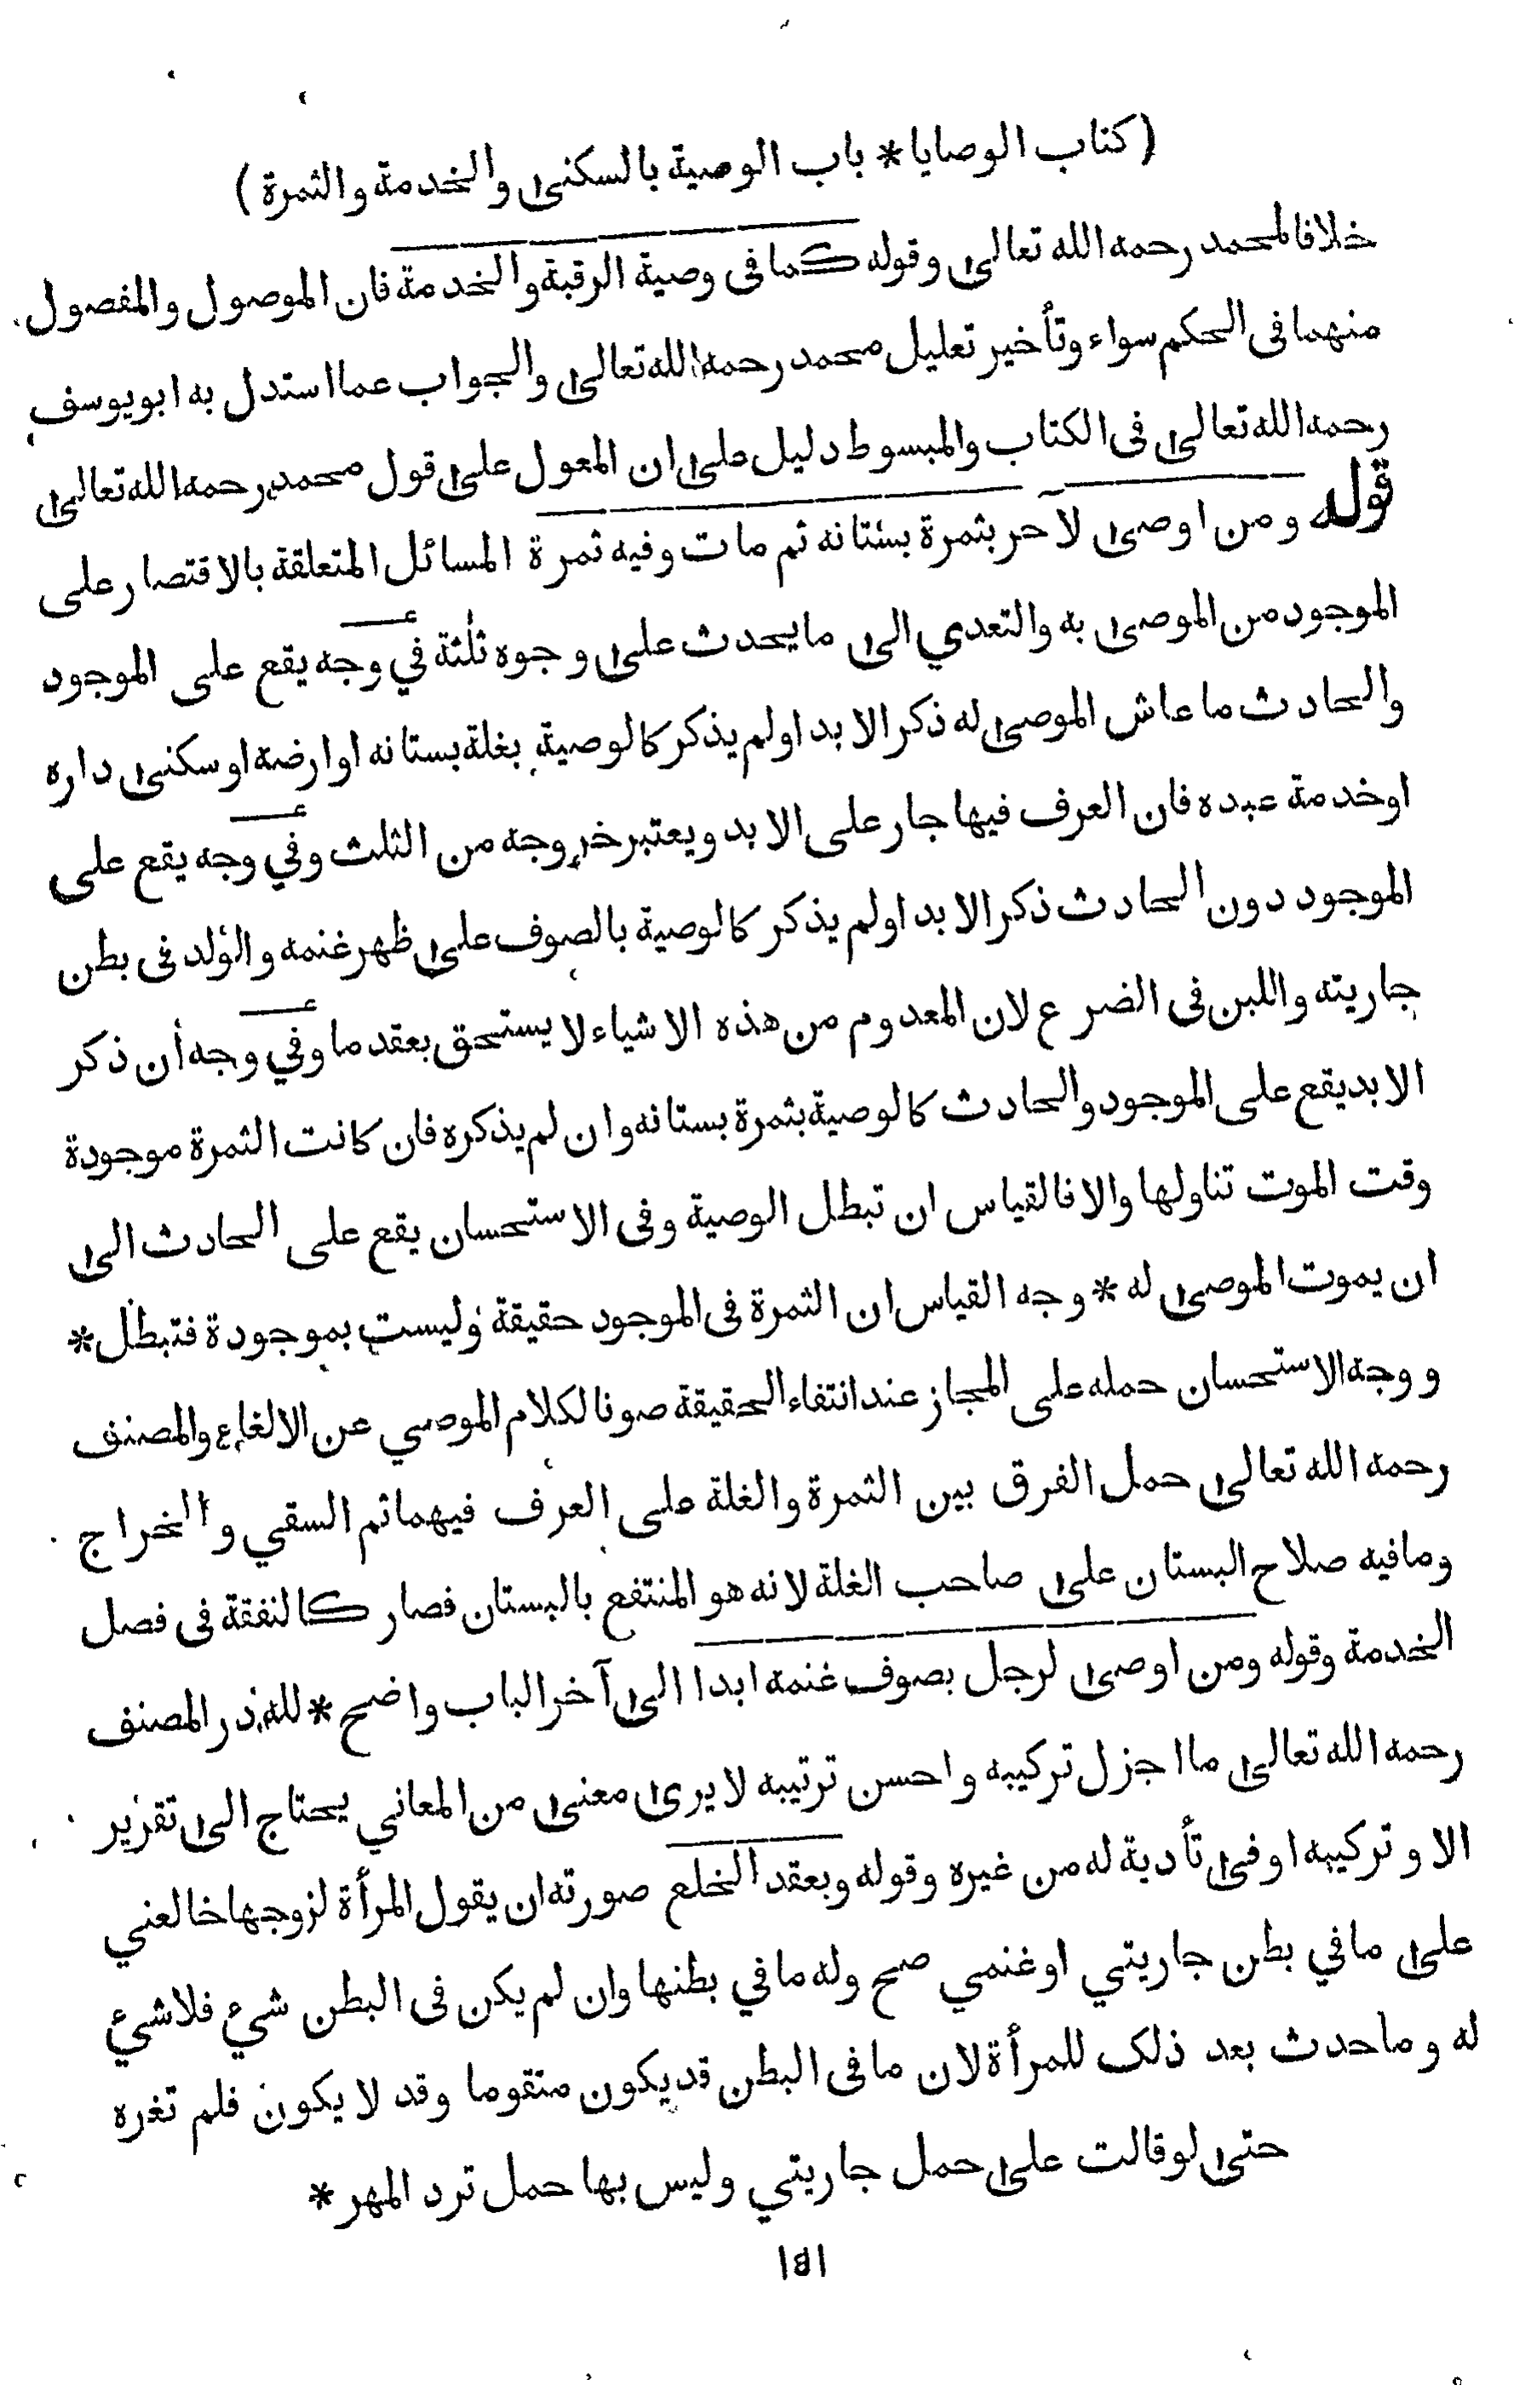 ( كتاب الوصايا * باب الوصية بالسكنى والخدمة والثمرة )
خلافا لمحمد رحمه الله تعالى وقوله كما فى وصية الرقبة والخدمة فان الموصول والمفصول
منهما فى الحكم سواء وتأخير تعليل محمد رحمه الله تعالى والجواب عما استدل به ابو يوسف
رحمه الله تعالى فى الكتاب والمبسوط دليل على ان المعول على قول محمد رحمه الله تعالى
قوله ومن اوصى لآخر بثمرة بستانه ثم مات وفيه ثمرة المسائل المتعلقة بالاقتصار على
الموجود من الموصى به والتعدي الى ما يحدث على وجوه ثلثة في وجه يقع على الموجود
والحادث ما عاش الموصى له ذكر الابد اولم يذكر كالوصية بغلة بستانه او ارضه او سكنى داره
اوخدمة عبده فان العرف فيها جار على الابد ويعتبر خروجه من الثلث وفي وجه يقع على
الموجود دون الحادث ذكر الابد اولم يذكر كالوصية بالصوف على ظهر غنمه والولد فى بطن
جاريته واللبن فى الضرع لان المعدوم من هذه الاشياء لا يستحق بعقد ما وفي وجه أن ذكر
الابد يقع على الموجود والحادث كالوصية بثمرة بستانه وان لم يذكره فان كانت الثمرة موجودة
وقت الموت تناولها والا فالقياس ان تبطل الوصية وفى الاستحسان يقع على الحادث الى
ان يموت الموصى له * وجه القياس ان الثمرة فى الموجود حقيقة وليست بموجودة فتبطل *
ووجه الاستحسان حمله على المجاز عند انتفاء الحقيقة صونا لكلام الموصي عن الالغاء والمصنف
رحمه الله تعالى حمل الفرق بين الثمرة والغلة على العرف فيهما ثم السقي والخراج
وما فيه صلاح البستان على صاحب الغلة لانه هو المنتفع بالبستان فصار كالنفقة فى فصل
الخدمة وقوله ومن اوصى لرجل بصوف غنمه ابدا الى آخر الباب واضح * لله در المصنف
رحمه الله تعالى ما اجزل تركيبه واحسن ترتيبه لا يرى معنى من المعاني يحتاج الى تقرير
الا وتركيبه اوفى تأدية له من غيره وقوله وبعقد الخلع صورته ان يقول المرأة لزوجها خالعني
على ما في بطن جاريتي او غنمي صح وله ما في بطنها وان لم يكن فى البطن شيء فلا شيء
له وما حدث بعد ذلك للمرأة لان ما فى البطن قد يكون متقوما وقد لا يكون فلم تغره
حتى لو قالت على حمل جاريتي وليس بها حمل ترد المهر *